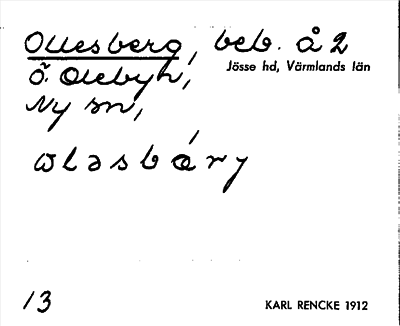 Ollesberg, beb. å 2
Jösse hd, Värmlands län
Ö. Olebyn,
Ny sn,
ωləsbáry
13
KARL RENCKE 1912